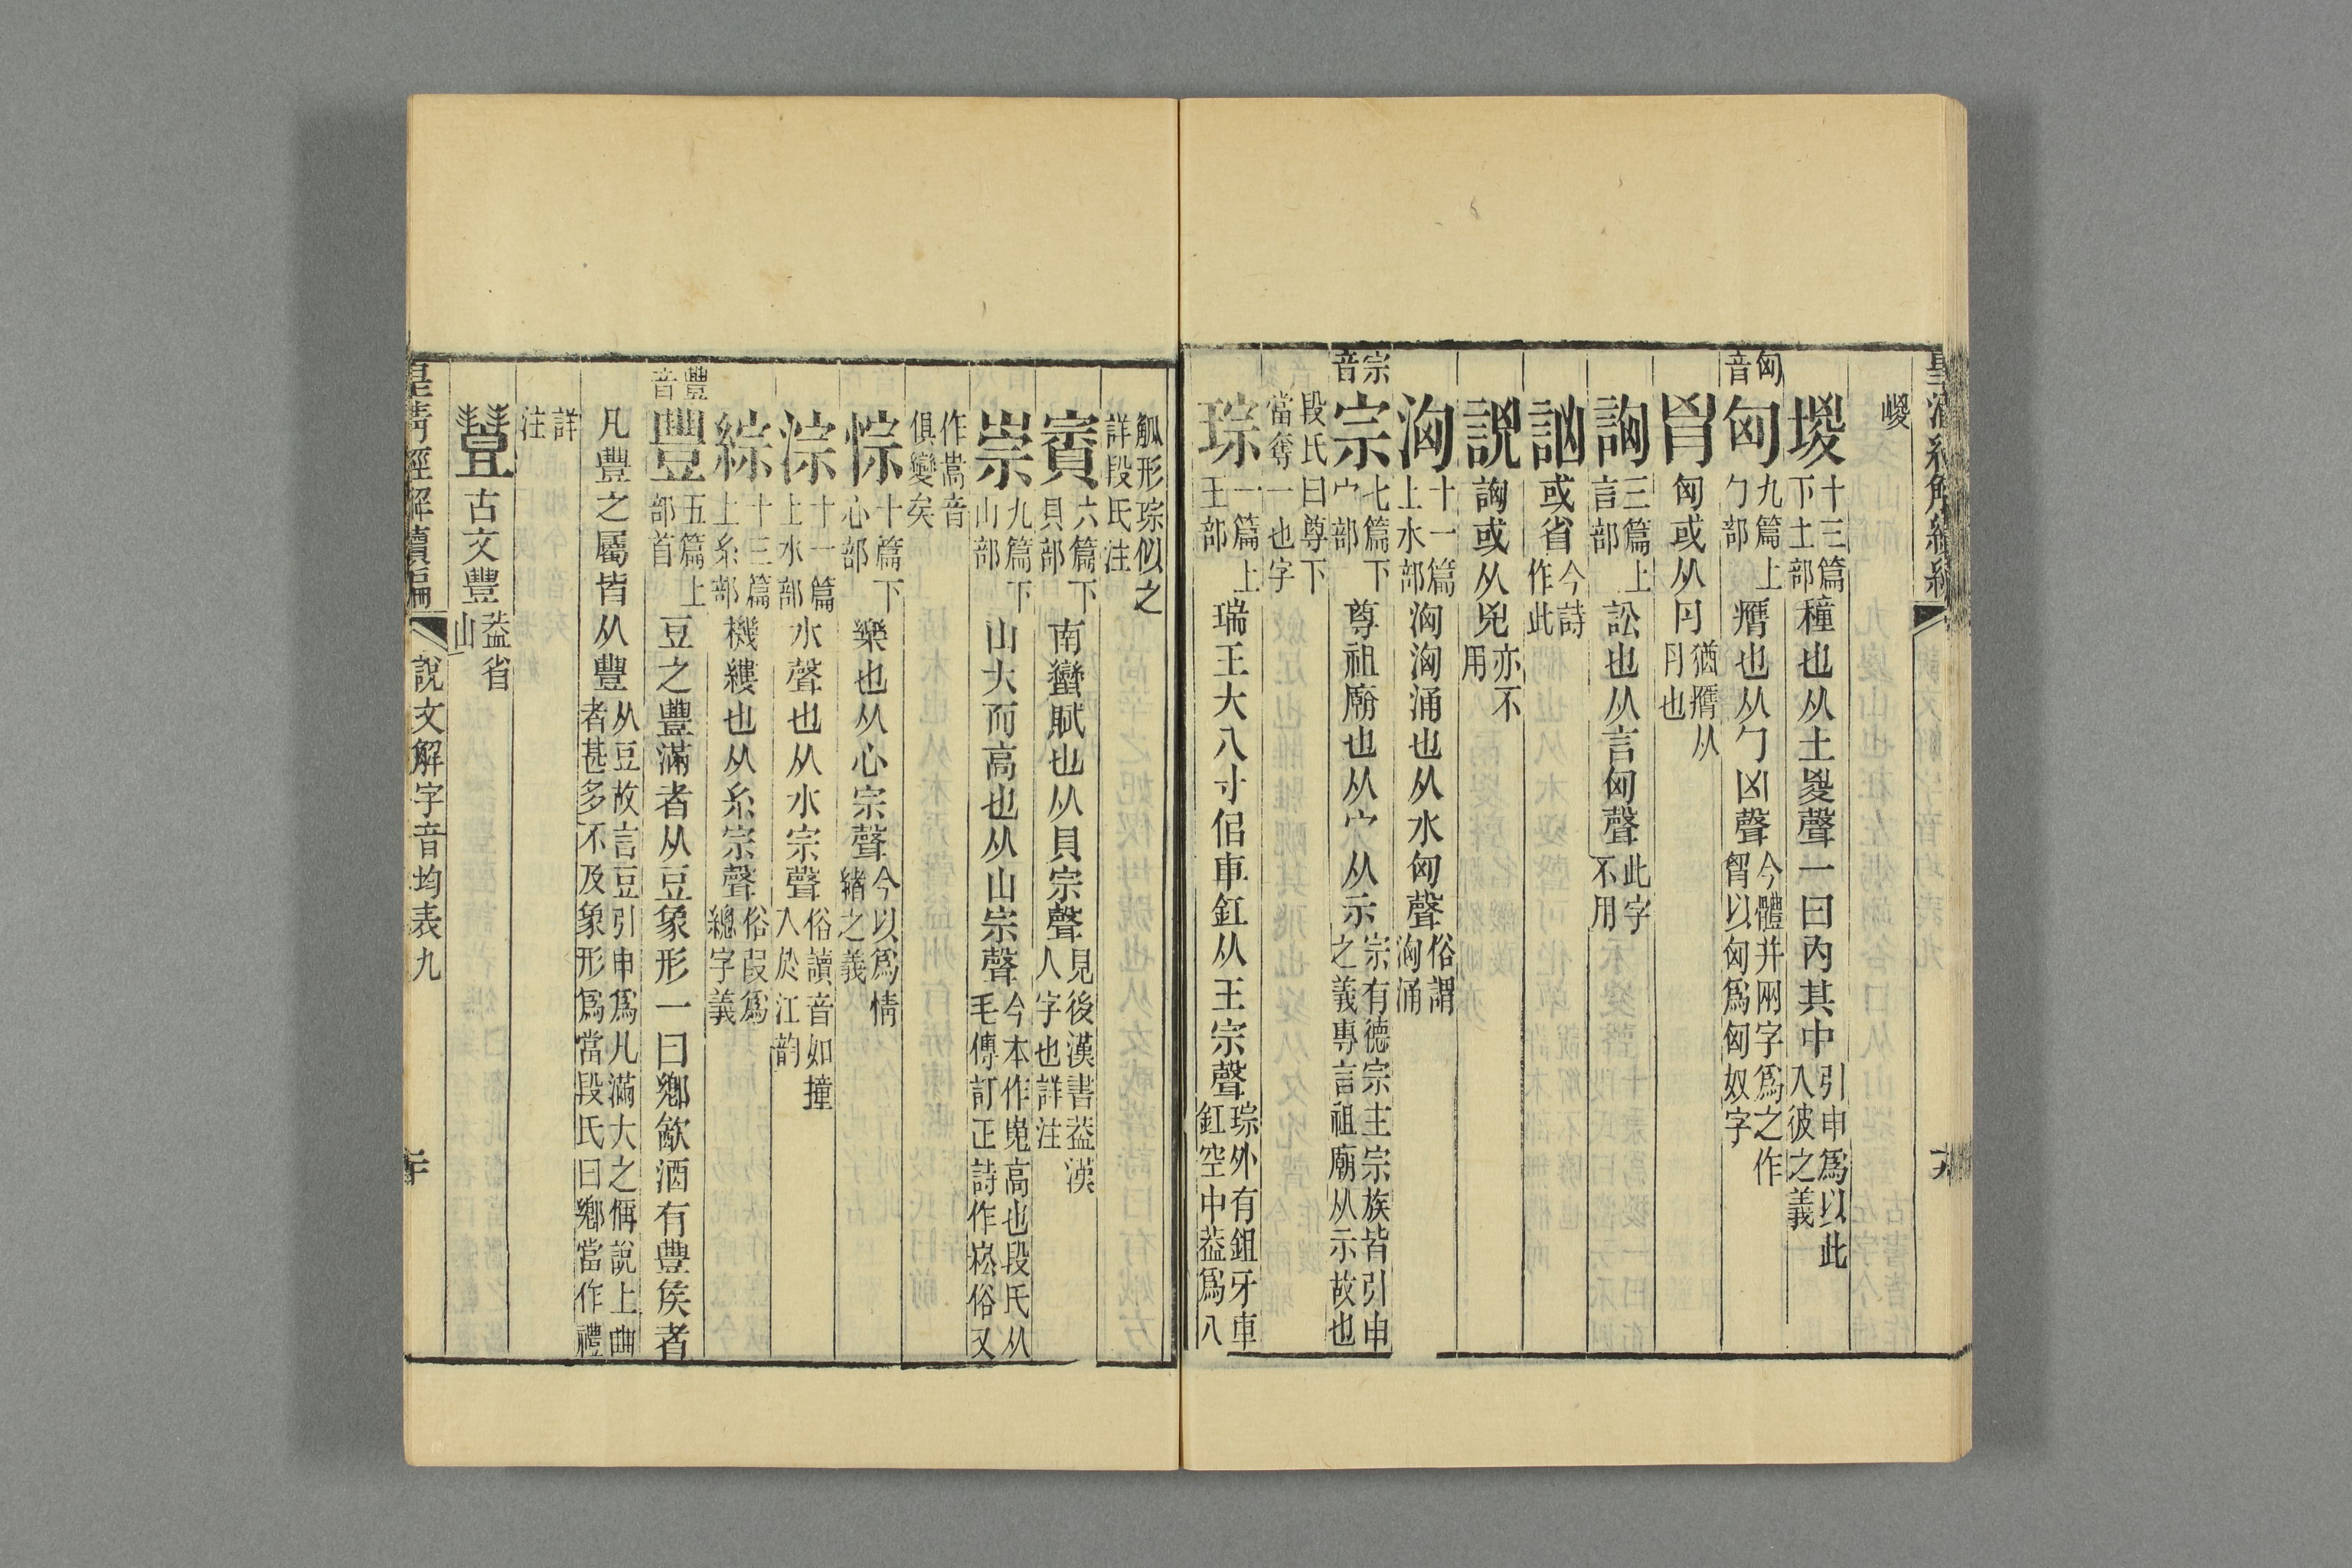 嵕
堫十三篇下土部種也从土㚇聲一曰內其中引申爲以此入彼之義
匈音
匈九篇上勹部膺也从勹凶聲今體并兩字爲之作胷以匈爲匈奴字
肎匈或从肉猶膺从肉也
訩三篇上言部訟也从言匈聲此字不用
訩或省今詩作此
說訩或从兇亦不用
洶十一篇上水部洶洶涌也从水匈聲俗謂洶涌
宗音
宗七篇下宀部尊祖廟也从宀从示宗有德宗主宗族皆引申之義專言祖廟从示故也
段氏曰尊下當奪一也字
琮一篇上王部瑞玉大八寸佀車釭从王宗聲琮外有鉏牙車釭空中葢爲八
觚形琮似之詳段氏注
賨六篇下貝部南蠻賦也从貝宗聲見後漢書葢漢人字也詳注
崇九篇下山部山大而高也从山宗聲今本作嵬高也段氏从毛傳訂正詩作崧俗又
作嵩音俱變矣
悰十篇下心部樂也从心宗聲今以爲情緒之義
淙十一篇上水部水聲也从水宗聲俗讀音如撞入於江韵
綜十三篇上糸部機縷也从糸宗聲俗叚爲總字義
豐音
豐五篇上部首豆之豐滿者从豆象形一曰鄉飲酒有豐矦者
凡豐之屬皆从豐从豆故言豆引申爲凡滿大之偁說上𠚖者甚多不及象形爲當段氏曰鄉當作禮
詳注
豐古文豐葢省山
皇清經解續編
說文解字音均表九